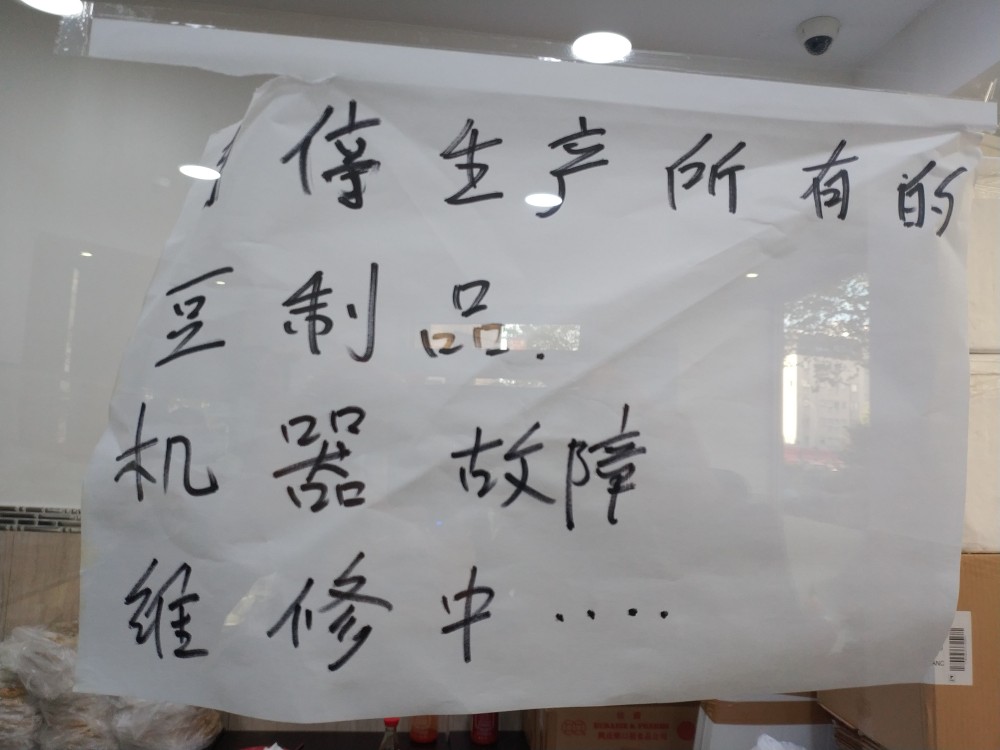 停生产所有的
豆制品.
机器故障
维修中....